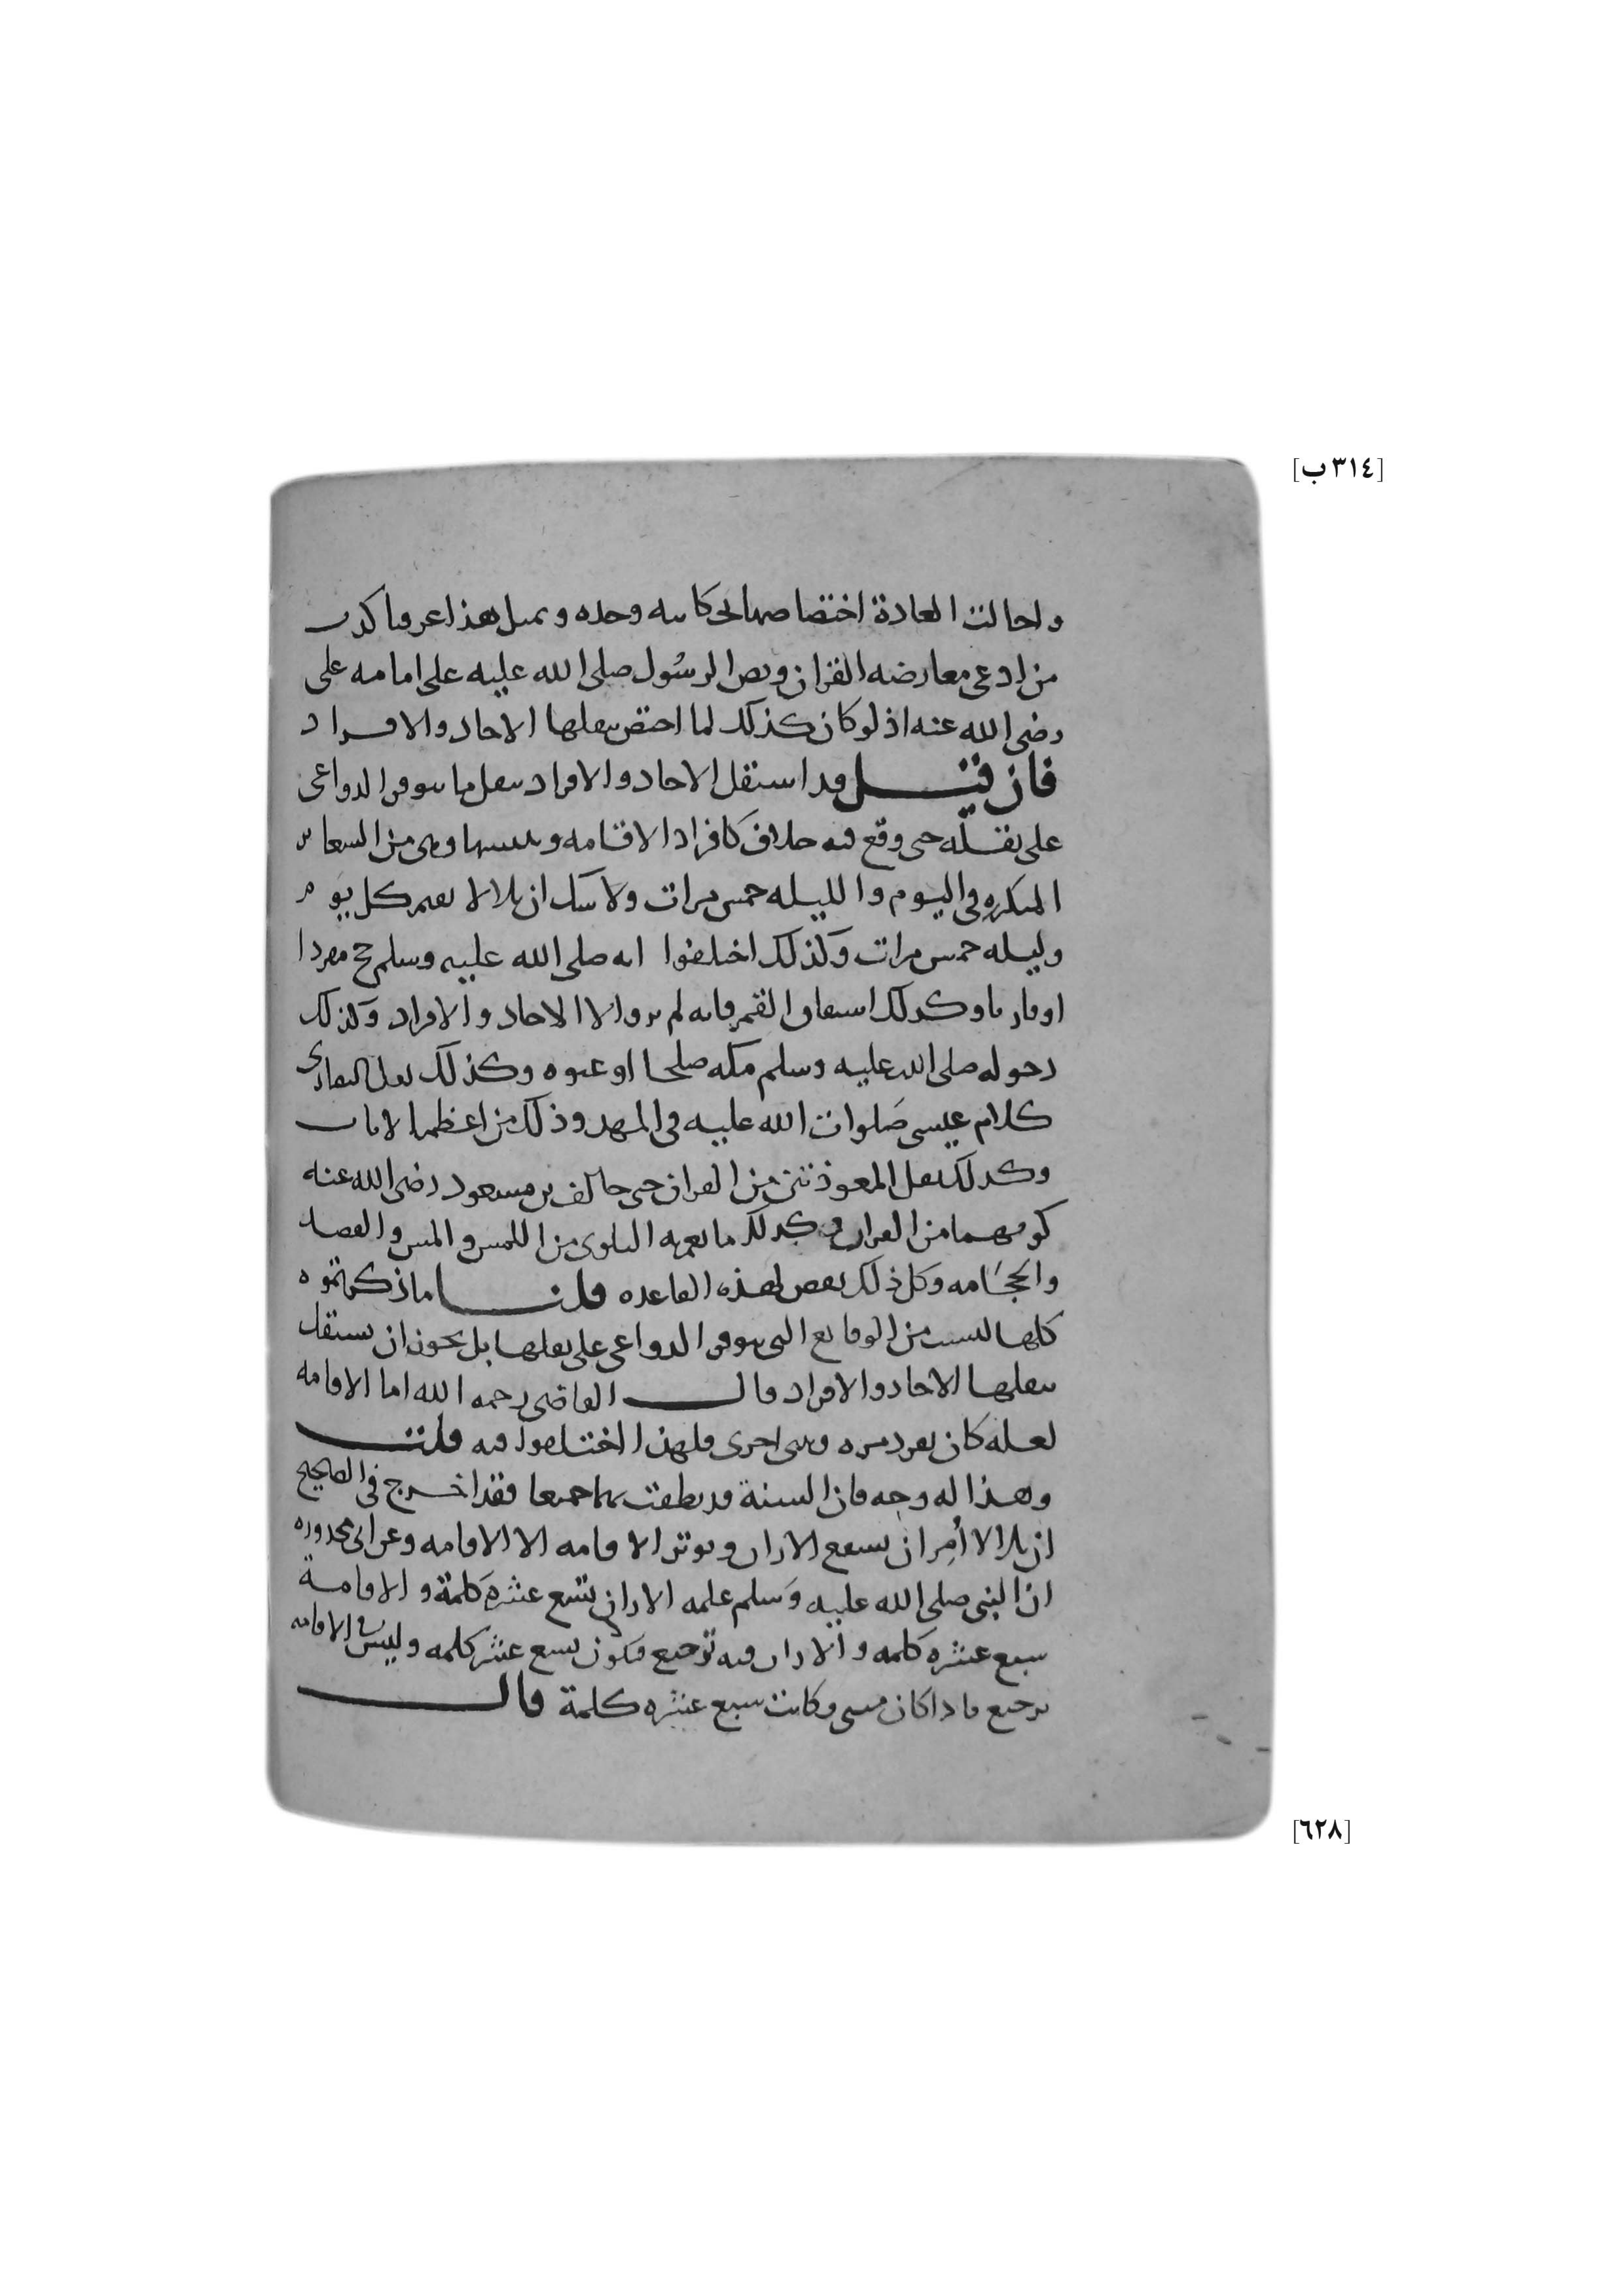 [٣١٤ ب]
واحالت العادة اختصاصها بحكايته وحده وبمثل هذا عرفنا كذب
من ادعى معارضه القران ونص الرسول صلى الله عليه على امامه على
رضى الله عنه اذ لو كان كذلك لما اختص بنقلها الاحاد والافراد
فان قيل قد استقل الاحاد والافراد بنقل ما تتوفر الدواعى
على نقله حتى وقع فيه خلاف كافراد الاقامه وتثنيتها وهى من الشعائر
المتكرره فى اليوم والليله خمس مرات ولا شك ان بلالا يقيم كل يوم
وليله خمس مرات وكذلك اختلفوا انه صلى الله عليه وسلم حج مفردا
او قارنا وكذلك انشقاق القمر فانه لم يروه الا الاحاد والافراد وكذلك
دخوله صلى الله عليه وسلم مكه صلحا او عنوه وكذلك نقل النصارى
كلام عيسى صلوات الله عليه فى المهد وذلك من اعظم الايات
وكذلك نقل المعوذتين من القران حتى خالف بن مسعود رضى الله عنه
كونهما من القران وكذلك ما تعم به البلوى من اللمس والمس والفصد
والحجامه وكل ذلك نقض لهذه القاعده قلنا ما ذكرتموه
كلها ليست من الوقايع التى تتوفر الدواعى على نقلها بل يجوز ان يستقل
بنقلها الاحاد والافراد قال القاضى رحمه الله اما الاقامه
لعله كان يفرد مره ويثنى اخرى فلهذا اختلفوا فيه قلت
وهذا له وجه فان السنة قد نطقت بهما جميعا فقد اخرج فى الصحيح
ان بلالا أمر ان يشفع الاذان ويوتر الاقامه الا الاقامه وعن ابى محذوره
ان النبى صلى الله عليه وسلم علمه الاذان تسع عشره كلمة والاقامة
سبع عشره كلمه والاذان فيه ترجيع فيكون تسع عشر كلمه وليس فى الاقامه
ترجيع فاذا كان مثنى وكانت سبع عشره كلمة قال
[٦٢٨]